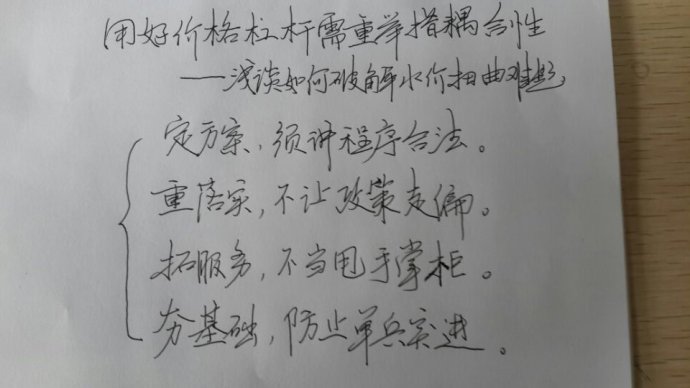 用好价格杠杆需重举措耦合性
——浅谈如何破解水价扭曲难题
定方案，须讲程序合法。
重落实，不让政策走偏。
拓服务，不当甩手掌柜。
夯基础，防止单兵突进。